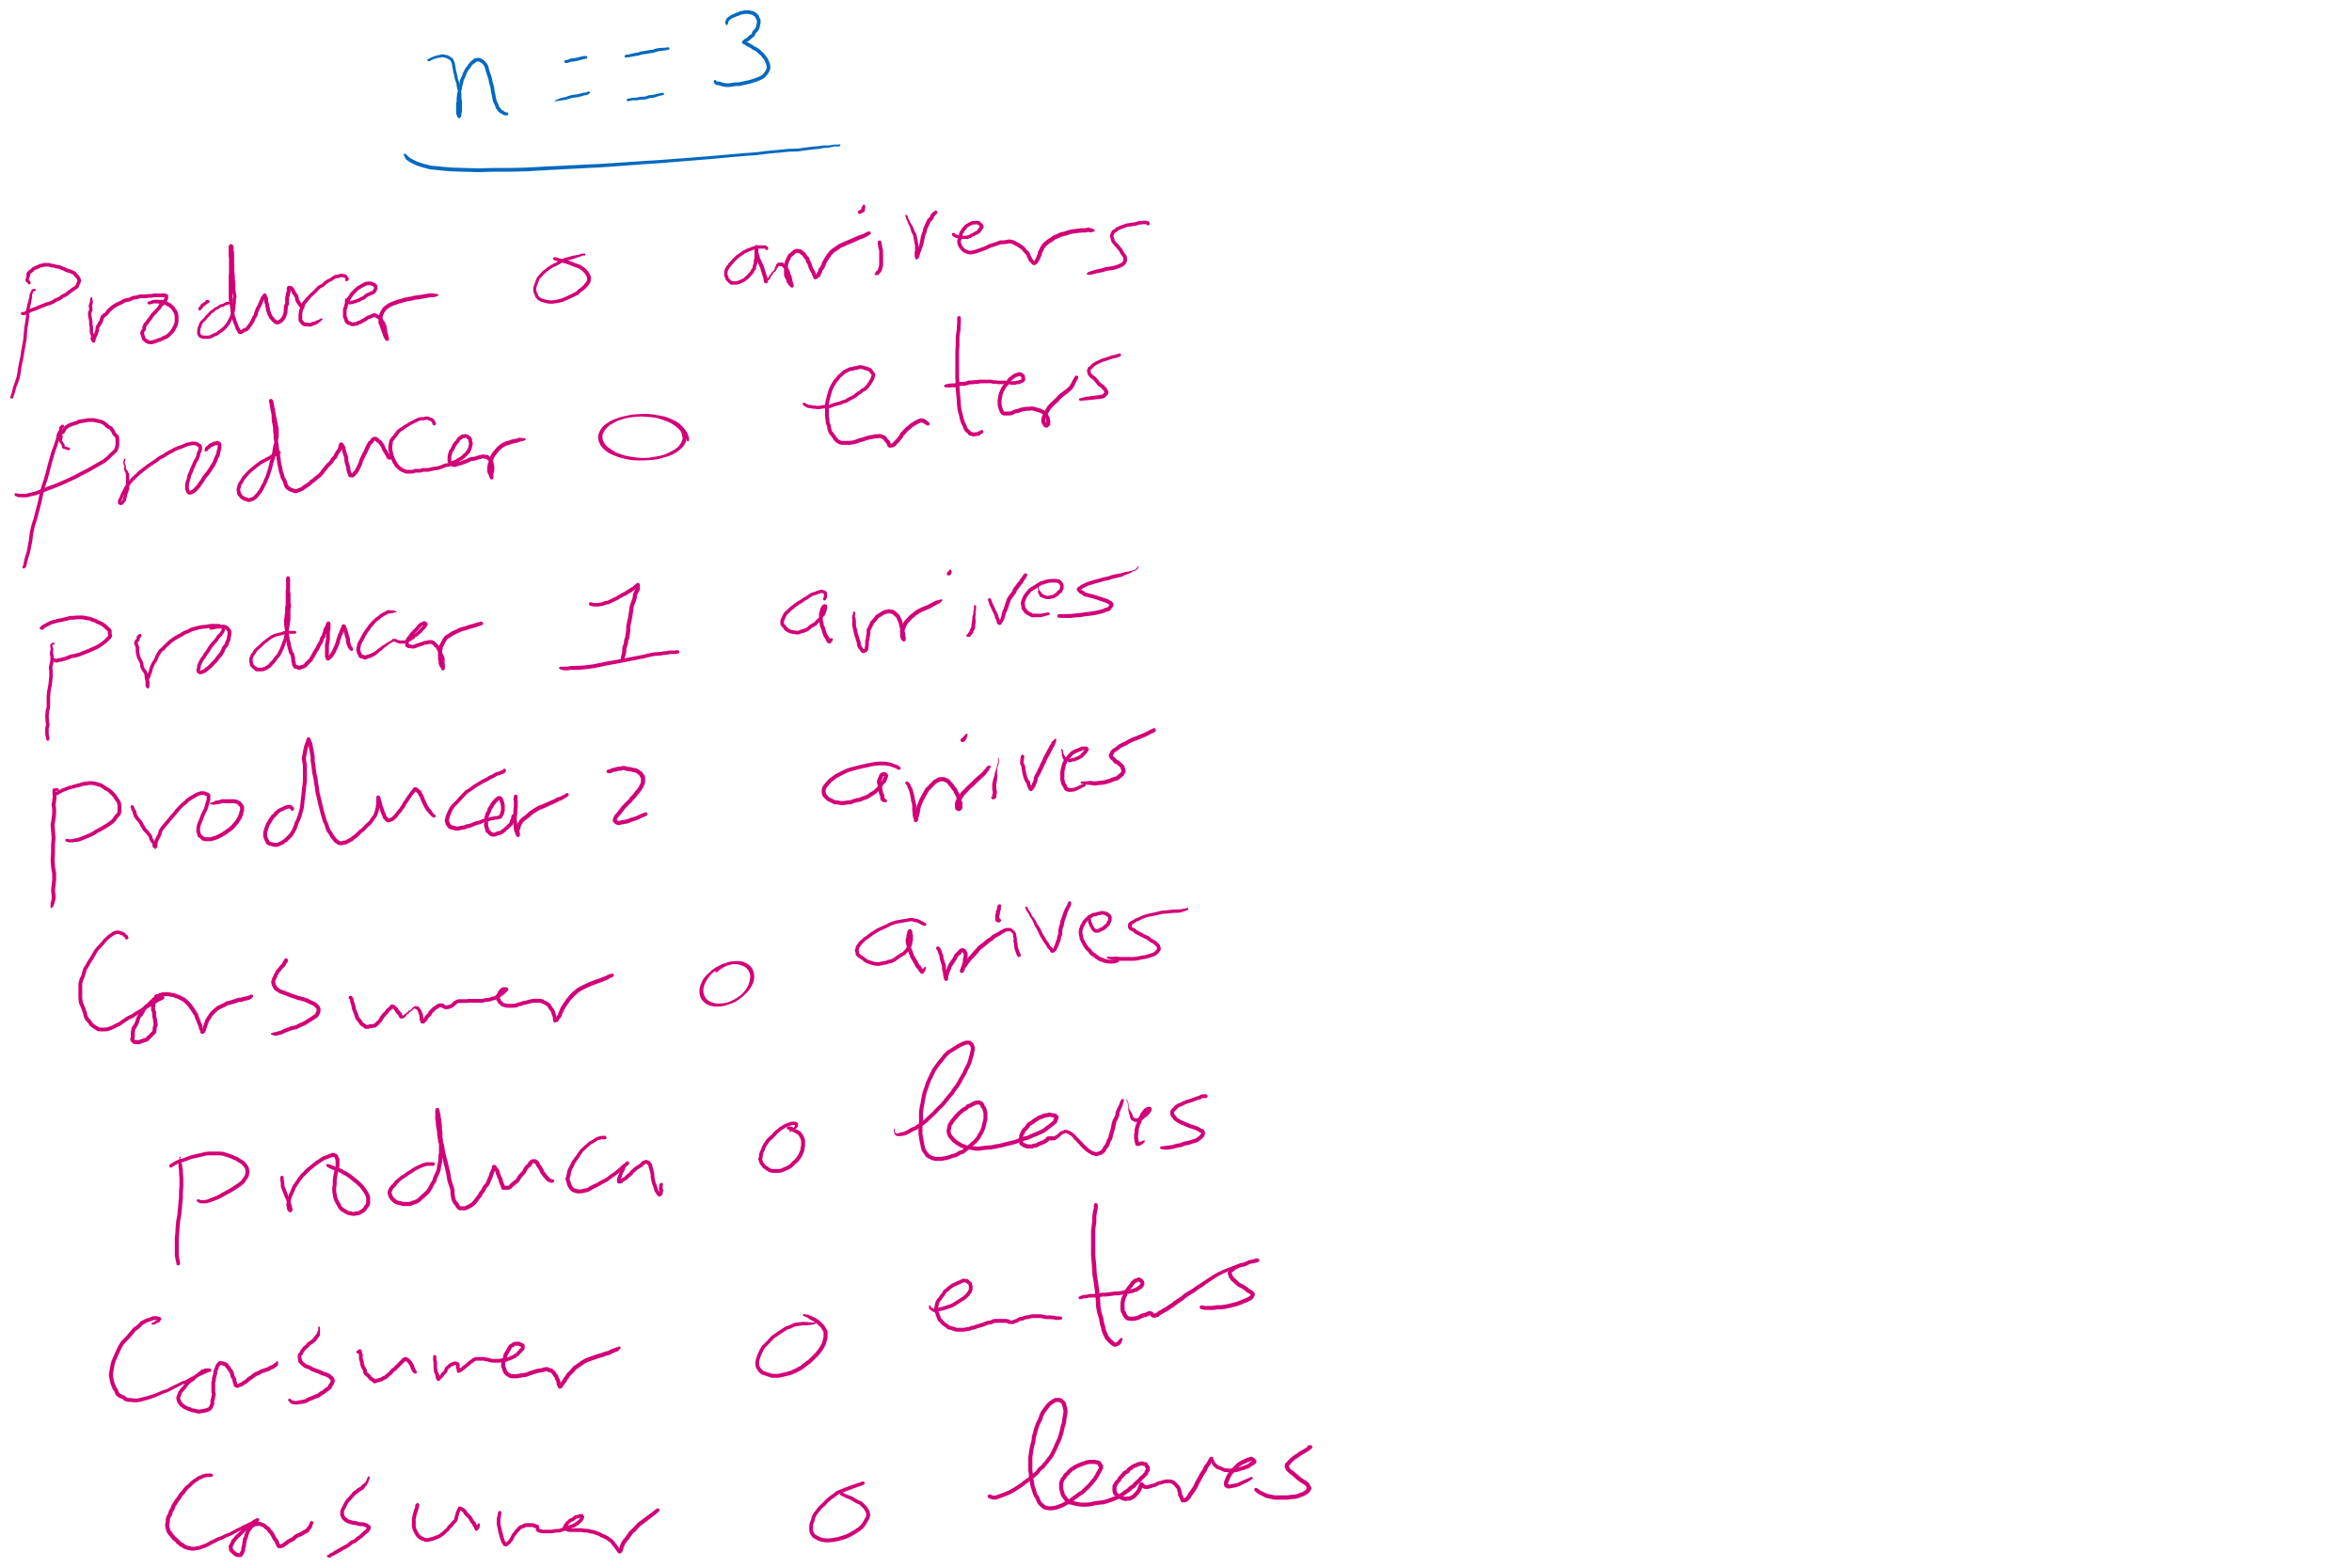 n == 3
producer 0 arivers
producer 0 eters
producer 1 arrives
producer 2 arives
Consumer 0 arives
producer 0 leaves
Consumer 0 eters
Consumer 0 leaves